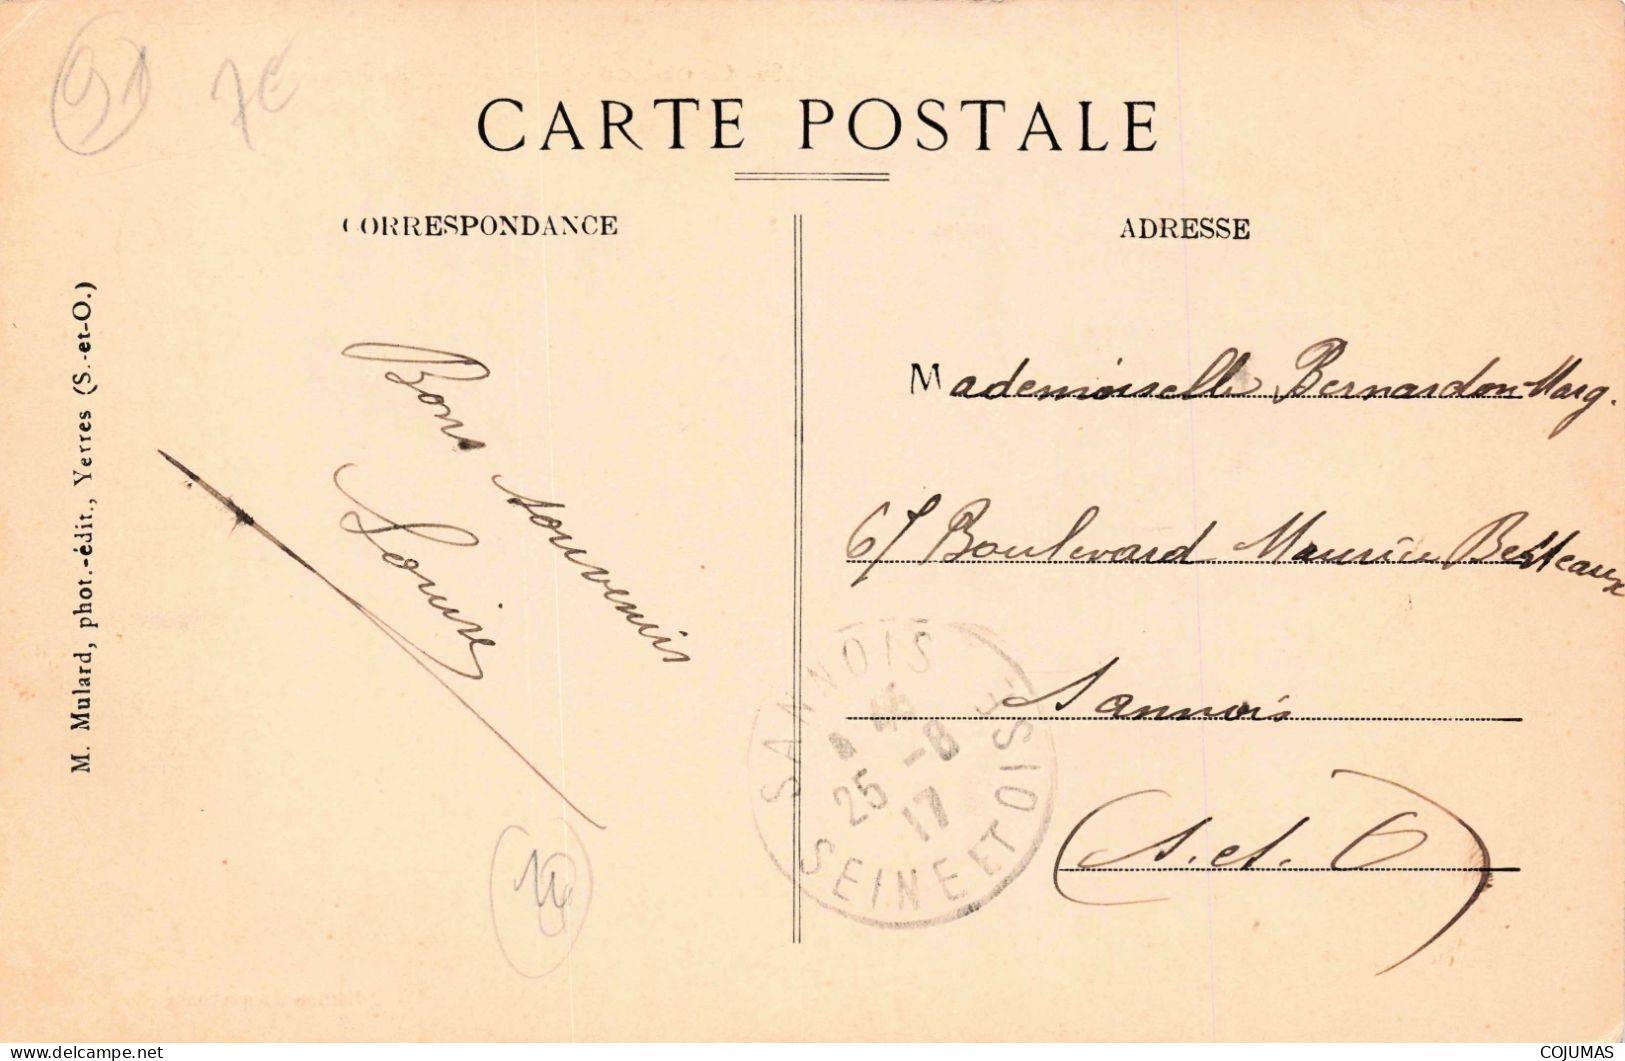 91
7€
CARTE POSTALE
CORRESPONDANCE
ADRESSE
M. Mulard, phot.-édit., Yerres (S.-et-O.)
Bons souvenirs
Louise
Mademoiselle Bernardon Marg.
67 Boulevard Maurice Berteaux
Sannois
(S. et. O)
SANNOIS
25 -8
17
SEINE ET OISE
delcampe.net
COJUMAS